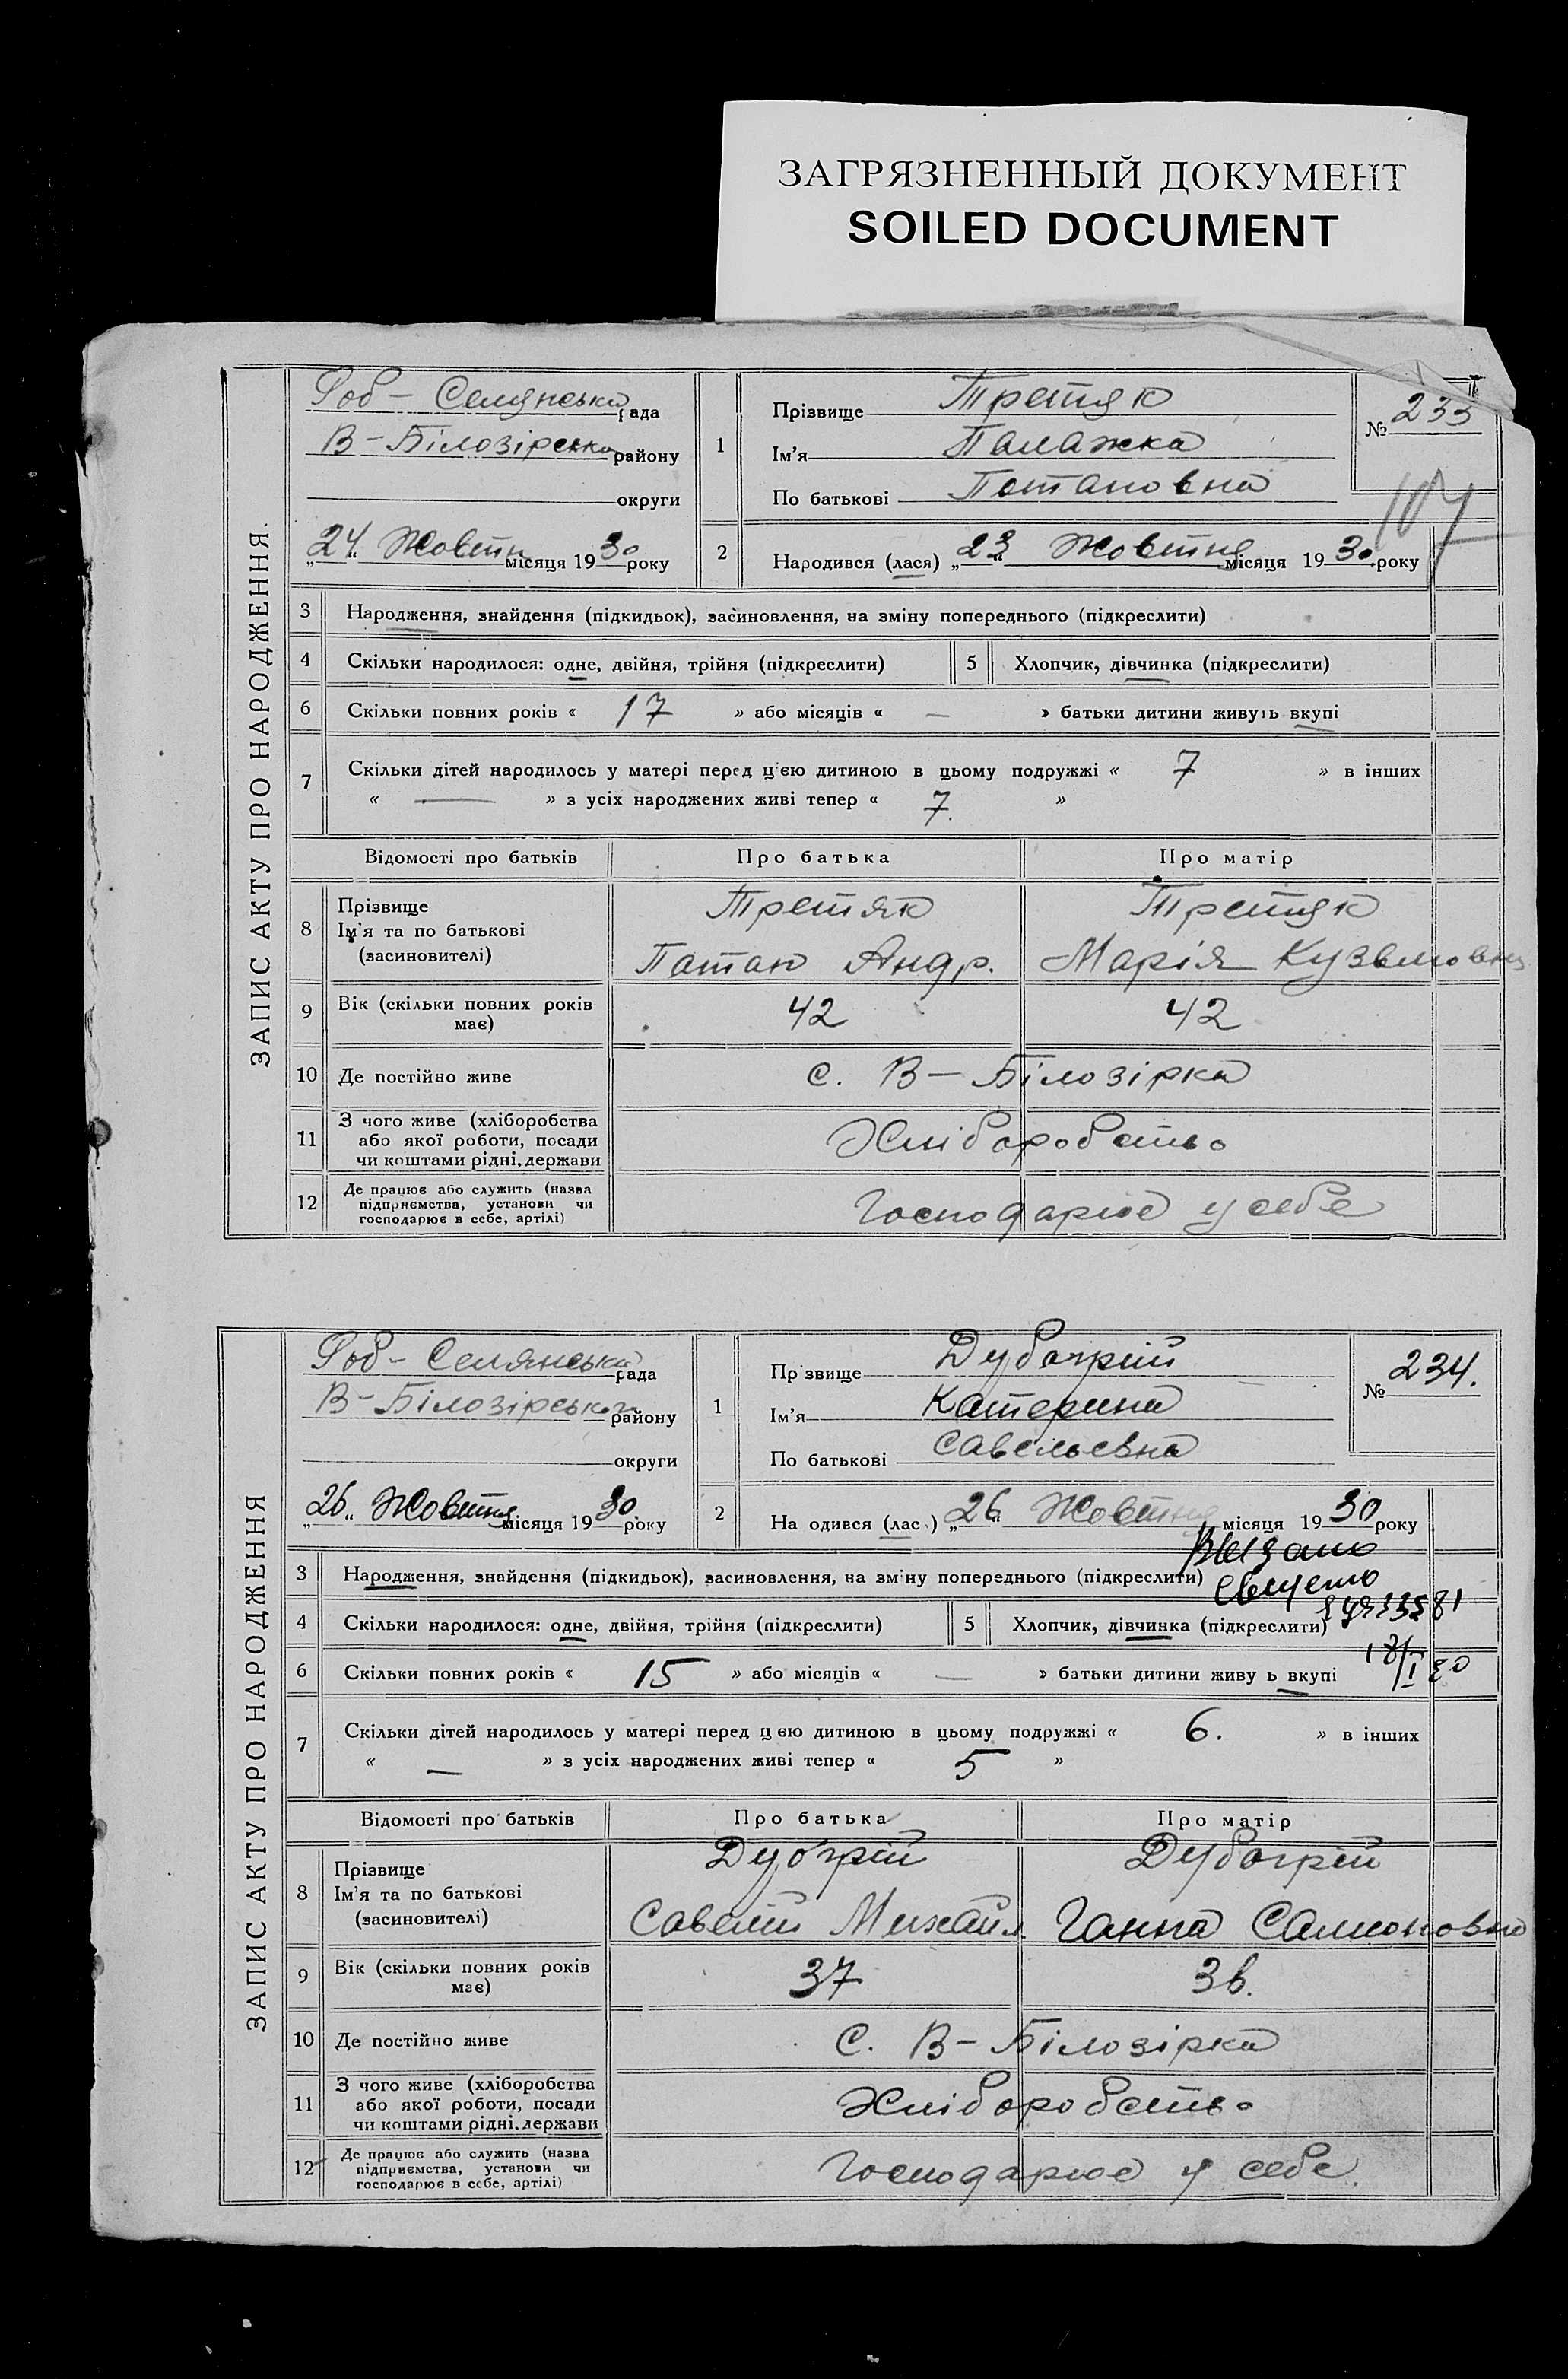 ЗАГРЯЗНЕННЫЙ ДОКУМЕНТ
SOILED DOCUMENT
ЗАПИС АКТУ ПРО НАРОДЖЕННЯ.
Роб - Селянська рада
В-Білозірського району
округи
„24“ Жовтн місяця 1930 року
1
Прізвище Третяк
Ім'я Палажка
По батькові Потаповна
№ 233
107
2
Народився (лася) „23“ Жовтня місяця 1930 року
3 Народження, знайдення (підкидьок), засиновлення, на зміну попереднього (підкреслити)
4 Скільки народилося: одне, двійня, трійня (підкреслити) 5 Хлопчик, дівчинка (підкреслити)
6 Скільки повних років « 17 » або місяців « — » батьки дитини живуть вкупі
7 Скільки дітей народилось у матері перед цією дитиною в цьому подружжі « 7 » в інших
« — » з усіх народжених живі тепер « 7. »
Відомості про батьків Про батька Про матір
8 Прізвище Третяк Третяк
Ім'я та по батькові
(засиновителі) Потап Андр. Марія Кузьмовна
9 Вік (скільки повних років має) 42 42
10 Де постійно живе с. В-Білозірка
11 З чого живе (хліборобства
або якої роботи, посади
чи коштами рідні, держави Хліборобство
12 Де працює або служить (назва
підприємства, установи чи
господарює в себе, артілі) Господарює у себе
ЗАПИС АКТУ ПРО НАРОДЖЕННЯ
Роб - Селянська рада
В-Білозірського району
округи
„26“ Жовтня місяця 1930 року
1
Пр звище Дубогрій
Ім'я Катерина
По батькові Савельевна
№ 234.
2
На одився (лас ) „26“ Жовтня місяця 1930 року
Выдано
3 Народження, знайдення (підкидьок), засиновлення, на зм ну попереднього (підкреслити)
4 Скільки народилося: одне, двійня, трійня (підкреслити) 5 Хлопчик, дівчинка (підкреслити)
18/I 80
6 Скільки повних років « 15 » або місяців « — » батьки дитини живу ь вкупі
7 Скільки дітей народилось у матері перед ц єю дитиною в цьому подружжі « 6. » в інших
« — » з усіх народжених живі тепер « 5 »
Відомості про батьків Про батька Про матір
8 Прізвище Дубогрій Дубогрій
Ім'я та по батькові
(засиновителі) Савелій Михайл. Ганна Самсоновна
9 Вік (скільки повних років має) 37 36.
10 Де постійно живе С. В-Білозірка
11 З чого живе (хліборобства
або якої роботи, посади
чи коштами рідні, держави Хліборобство
12 Де працює або служить (назва
підприємства, установи чи
господарює в себе, артілі) Господарює у себе.